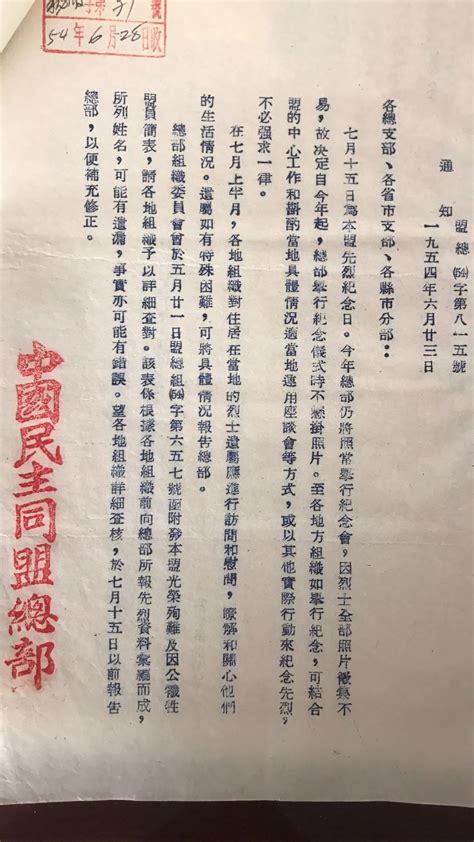 號
54年6月28日收
通知
盟總(54)字第八一五號
一九五四年六月廿三日
各總支部、各省市支部、各縣市分部：
七月十五日為本盟先烈紀念日。今年總部仍將照常舉行紀念會，因烈士全部照片徵集不
易，故决定自今年起，總部舉行紀念儀式時不懸掛照片。至各地方組織如舉行紀念，可結合
盟的中心工作和斟酌當地具體情況適當地運用座談會等方式，或以其他實際行動來紀念先烈，
不必强求一律。
在七月上半月，各地組織對住居在當地的烈士遺屬應進行訪問和慰問，瞭解和關心他們
的生活情况。遺屬如有特殊困難，可將具體情況報告總部。
總部組織委員會曾於五月廿一日盟總組(54)字第六五七號函附發本盟光榮殉難及因公犧牲
盟員簡表，請各地組織予以詳細查對。該表係根據各地組織前向總部所報先烈資料彙編而成，
所列姓名，可能有遺漏，事實亦可能有錯誤。望各地組織詳細查核，於七月十五日以前報告
總部，以便補充修正。
中國民主同盟總部